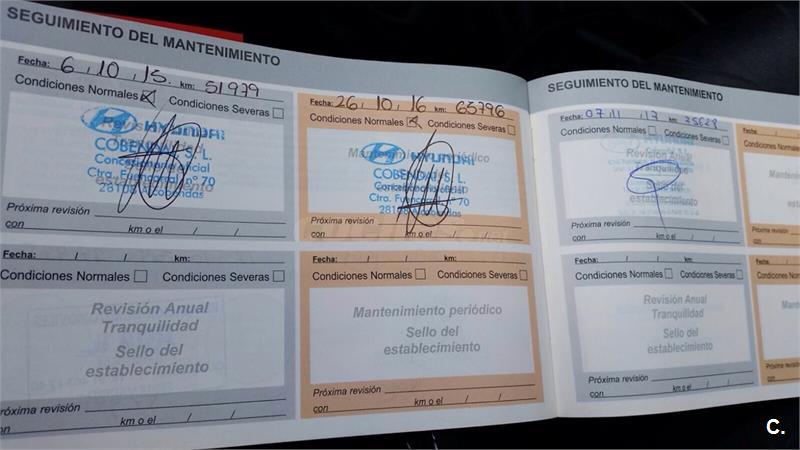 SEGUIMIENTO DEL MANTENIMIENTO
Fecha: 6, 10, 15. km: 51979
Condiciones Normales Condiciones Severas
Revisión
HYUNDAI
COBENDAI S. L.
Concesionario oficial
Ctra. Fuencarral nº 70
28108 Alcobendas
establecimiento
Próxima revisión
con km o el / /
Fecha: 26, 10, 16 km: 65796
Condiciones Normales Condiciones Severas
Mantenimiento periódico
HYUNDAI
COBENDAI S. L.
Concesionario oficial
Ctra. Fuencarral nº 70
28108 Alcobendas
Próxima revisión
con km o el / /
Fecha: / / km:
Condiciones Normales Condiciones Severas
Revisión Anual
Tranquilidad
Sello del
establecimiento
Próxima revisión
con km o el / /
Fecha: / / km:
Condiciones Normales Condiciones Severas
Mantenimiento periódico
Sello del
establecimiento
Próxima revisión
con km o el / /
SEGUIMIENTO DEL MANTENIMIENTO
Fecha: 07/11/17 km
Condiciones Normales Condiciones Severas
Revisión Anual
Tranquilidad
Sello del
establecimiento
Próxima revisión
con km o el / /
Fecha: /
Condiciones Norma
Próxima revisión
con
Fecha: / / km:
Condiciones Normales Condiciones Severas
Revisión Anual
Tranquilidad
Sello del
establecimiento
Próxima revisión
con km o el / /
Fecha: /
Condiciones Norma
Próxima revisión
con
C.